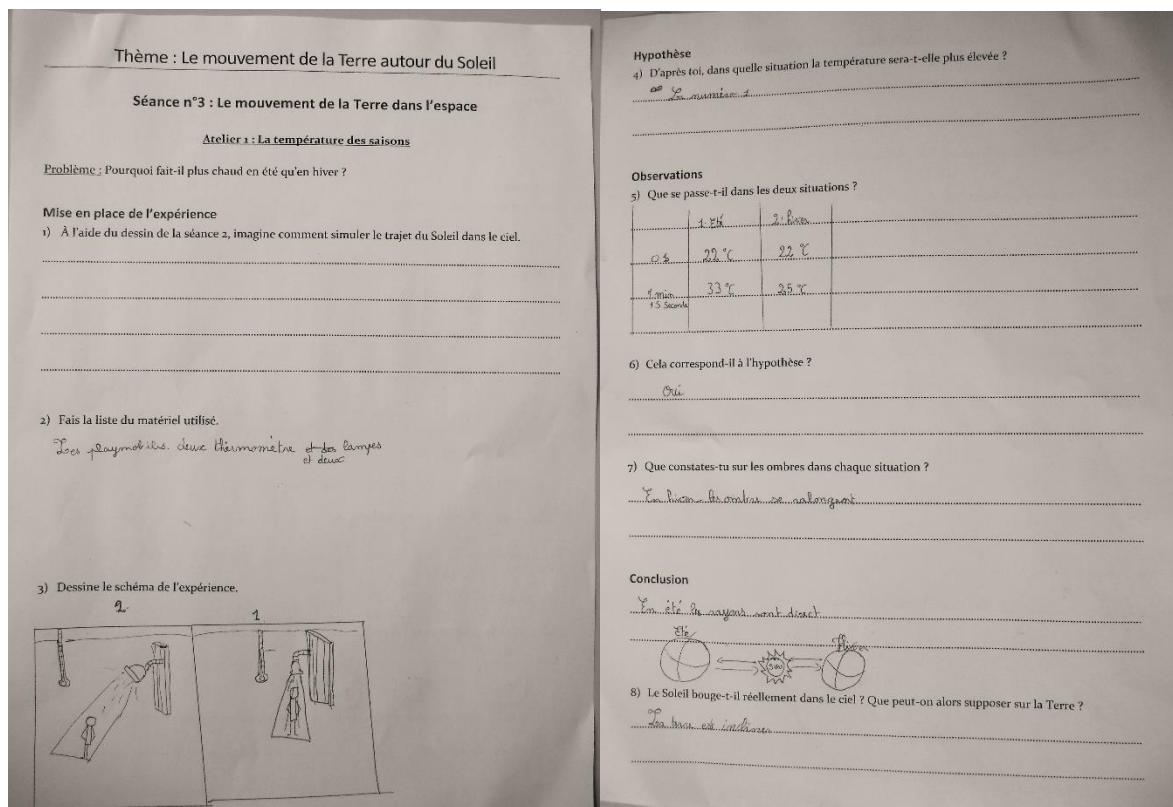 Thème : Le mouvement de la Terre autour du Soleil
Séance n°3 : Le mouvement de la Terre dans l'espace
Atelier 1 : La température des saisons
Problème : Pourquoi fait-il plus chaud en été qu'en hiver ?
Mise en place de l'expérience
1) À l'aide du dessin de la séance 2, imagine comment simuler le trajet du Soleil dans le ciel.
2) Fais la liste du matériel utilisé.
Les playmobils. deux thermomètre et des lampes
et deux
3) Dessine le schéma de l'expérience.
2 1
Hypothèse
4) D'après toi, dans quelle situation la température sera-t-elle plus élevée ?
Le numéro 1
Observations
5) Que se passe-t-il dans les deux situations ?
1: Eté 2: hiver
0 s 22 °C 22 °C
1 min 33 °C 25 °C
15 Seconde
6) Cela correspond-il à l'hypothèse ?
Oui
7) Que constates-tu sur les ombres dans chaque situation ?
En hiver les ombres se ralongent
Conclusion
En été les rayons sont direct
Eté Hiver
8) Le Soleil bouge-t-il réellement dans le ciel ? Que peut-on alors supposer sur la Terre ?
La terre est